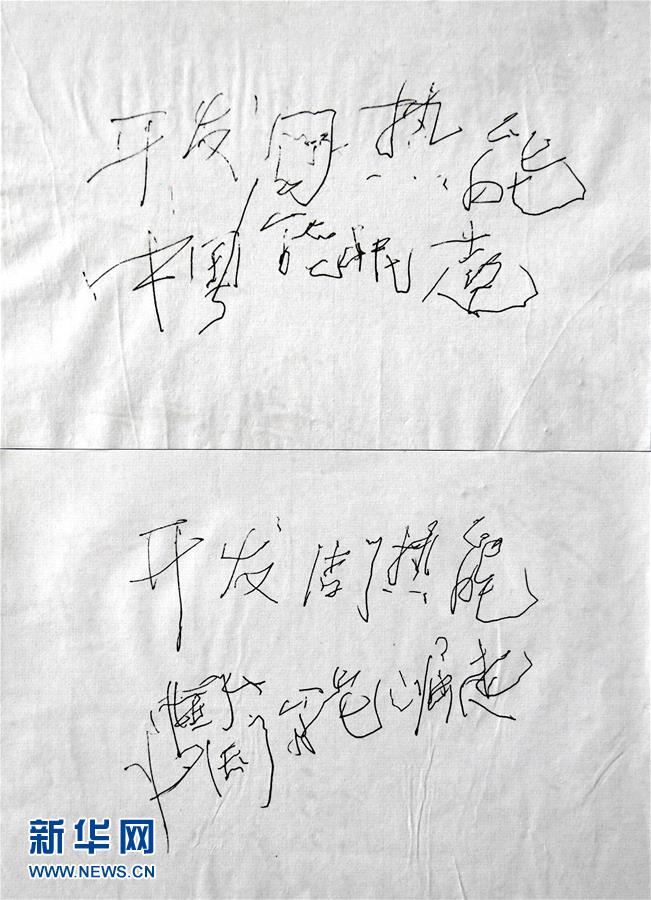 开发固热能
中国能崛起
开发固热能
中国能崛起
新华网
WWW.NEWS.CN